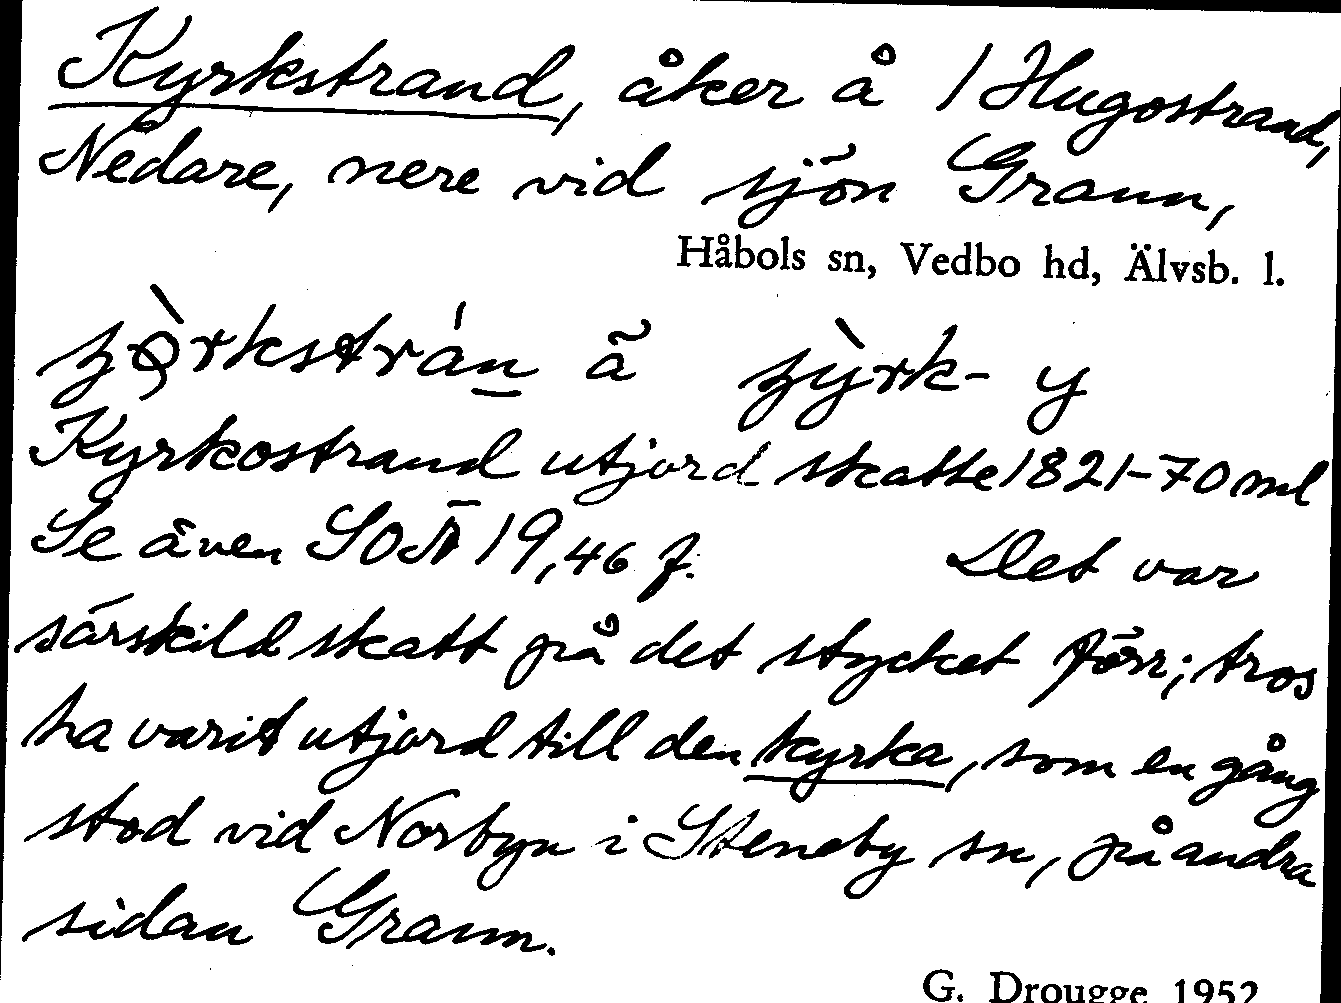 Kyrkstrand, åker å 1 Hugostrand,
Nedare, nere vid sjön Graun,
Håbols sn, Vedbo hd, Älvsb. l.
Kyrkostrand utjord skatte 1821-70 ml
Se även SOÄ 19,46 f. Det var
särskild skatt på det stycket förr; tros
ha varit utjord till den kyrka, som en gång
stod vid Norbyn i Steneby sn, på andra
sidan Graun.
G. Drougge 1952